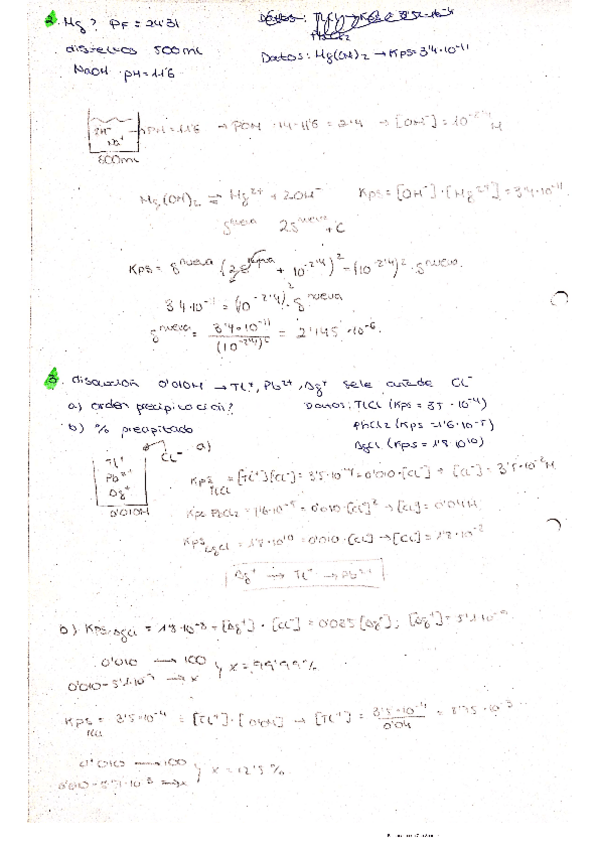 2. Mg? PF = 24'31
Datos: Mg(OH)2 → Kps = 3'4·10-11
disueltos 500mL
NaOH pH = 11'6
→ PH = 11'6 → POH = 14-11'6 = 2'4 → [OH-] = 10-2'4 M
500mL
Mg(OH)2 ⇌ Mg2+ + 2OH- Kps = [OH-]·[Mg2+] = 3'4·10-11
s nueva 2s nueva + C
Kps = s nueva (2s nueva + 10-2'4)2 = (10-2'4)2 · s nueva
3'4·10-11 = (10-2'4)2 · s nueva
s nueva = 3'4·10-11 / (10-2'4)2 = 2'145·10-6.
3. disolución 0'010M → Tl+, Pb2+, Ag+ se le añade Cl-
a) orden precipitación? Datos: TlCl (Kps = 3'5·10-4)
b) % precipitado PbCl2 (Kps = 1'6·10-5)
AgCl (Kps = 1'8·10-10)
Tl+ Cl- a)
Pb2+
Ag+
0'010M
Kps TlCl = [Tl+][Cl-] = 3'5·10-4 = 0'010·[Cl-] → [Cl-] = 3'5·10-2 M
Kps PbCl2 = 1'6·10-5 = 0'010·[Cl]2 → [Cl] = 0'04M
Kps AgCl = 1'8·10-10 = 0'010·[Cl] → [Cl] =
Ag+ → Tl+ → Pb2+
b) Kps AgCl = [Ag+]·[Cl-] = [Ag+]; [Ag+] =
0'010 → 100
→ x } x = 99'99%
Kps TlCl = 3'5·10-4 = [Tl+]·[0'04] → [Tl+] = 3'5·10-4 / 0'04 = 8'75·10-3
0'010 → 100
x = 12'5 %